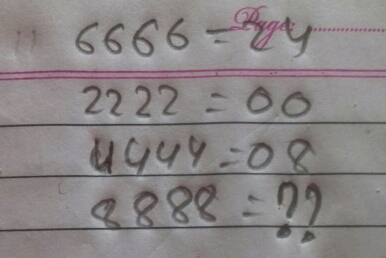 Page:
6666 = 24
2222 = 00
4444 = 08
8888 = ??